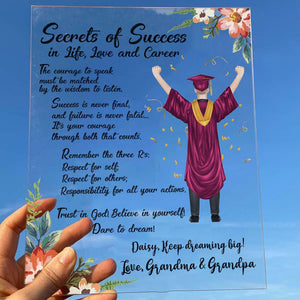 Secrets of Success
in Life, Love and Career
The courage to speak
must be matched
by the wisdom to listen,
Success is never final,
and failure is never fatal...
It's your courage
through both that counts.
Remember the three Rs:
Respect for self;
Respect for others;
Responsibility for all your actions.
Trust in God! Believe in yourself!
Dare to dream!
Daisy, Keep dreaming big!
Love, Grandma & Grandpa